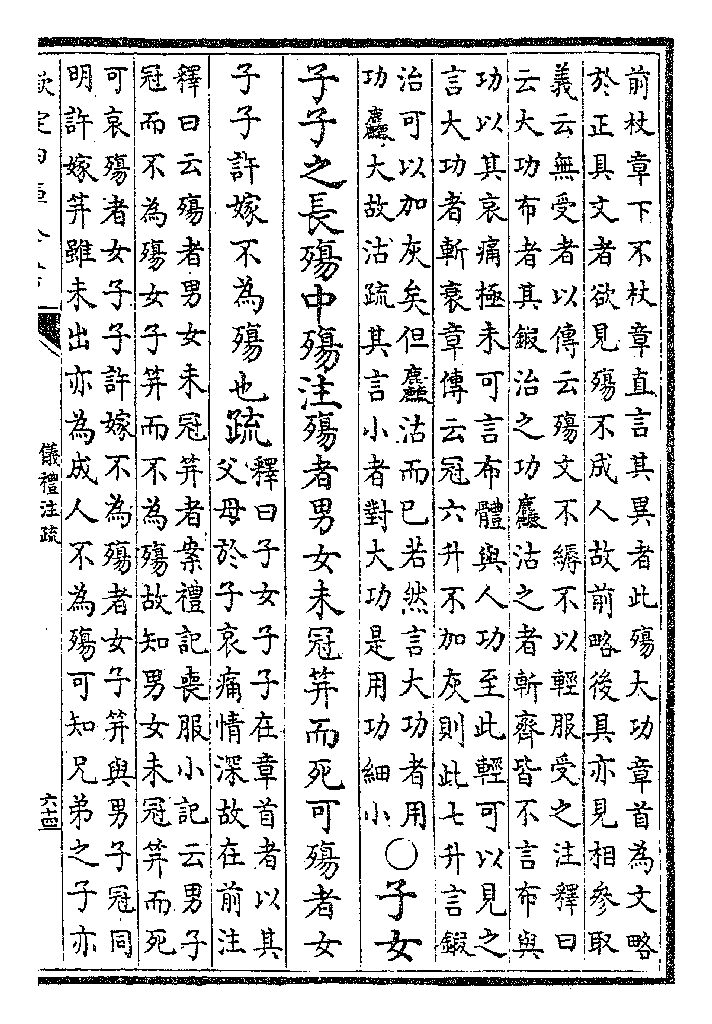 前杖章下不杖章直言其異者此殤大功章首為文略
於正具文者欲見殤不成人故前略後具亦見相參取
義云無受者以傳云殤文不縟不以輕服受之注釋曰
云大功布者其鍜治之功麤沽之者斬齊皆不言布與
功以其哀痛極未可言布體與人功至此輕可以見之
言大功者斬衰章傳云冠六升不加灰則此七升言鍜
治可以加灰矣但麤沽而已若然言大功者用
功麤大故沽疏其言小者對大功是用功細小
○子女
子子之長殤中殤注殤者男女未冠笄而死可殤者女
子子許嫁不為殤也疏
釋曰子女子子在章首者以其
父母於子哀痛情深故在前注
釋曰云殤者男女未冠笄者案禮記喪服小記云男子
冠而不為殤女子笄而不為殤故知男女未冠笄而死
可哀殤者女子子許嫁不為殤者女子笄與男子冠同
明許嫁笄雖未出亦為成人不為殤可知兄弟之子亦
儀禮注疏
六十四